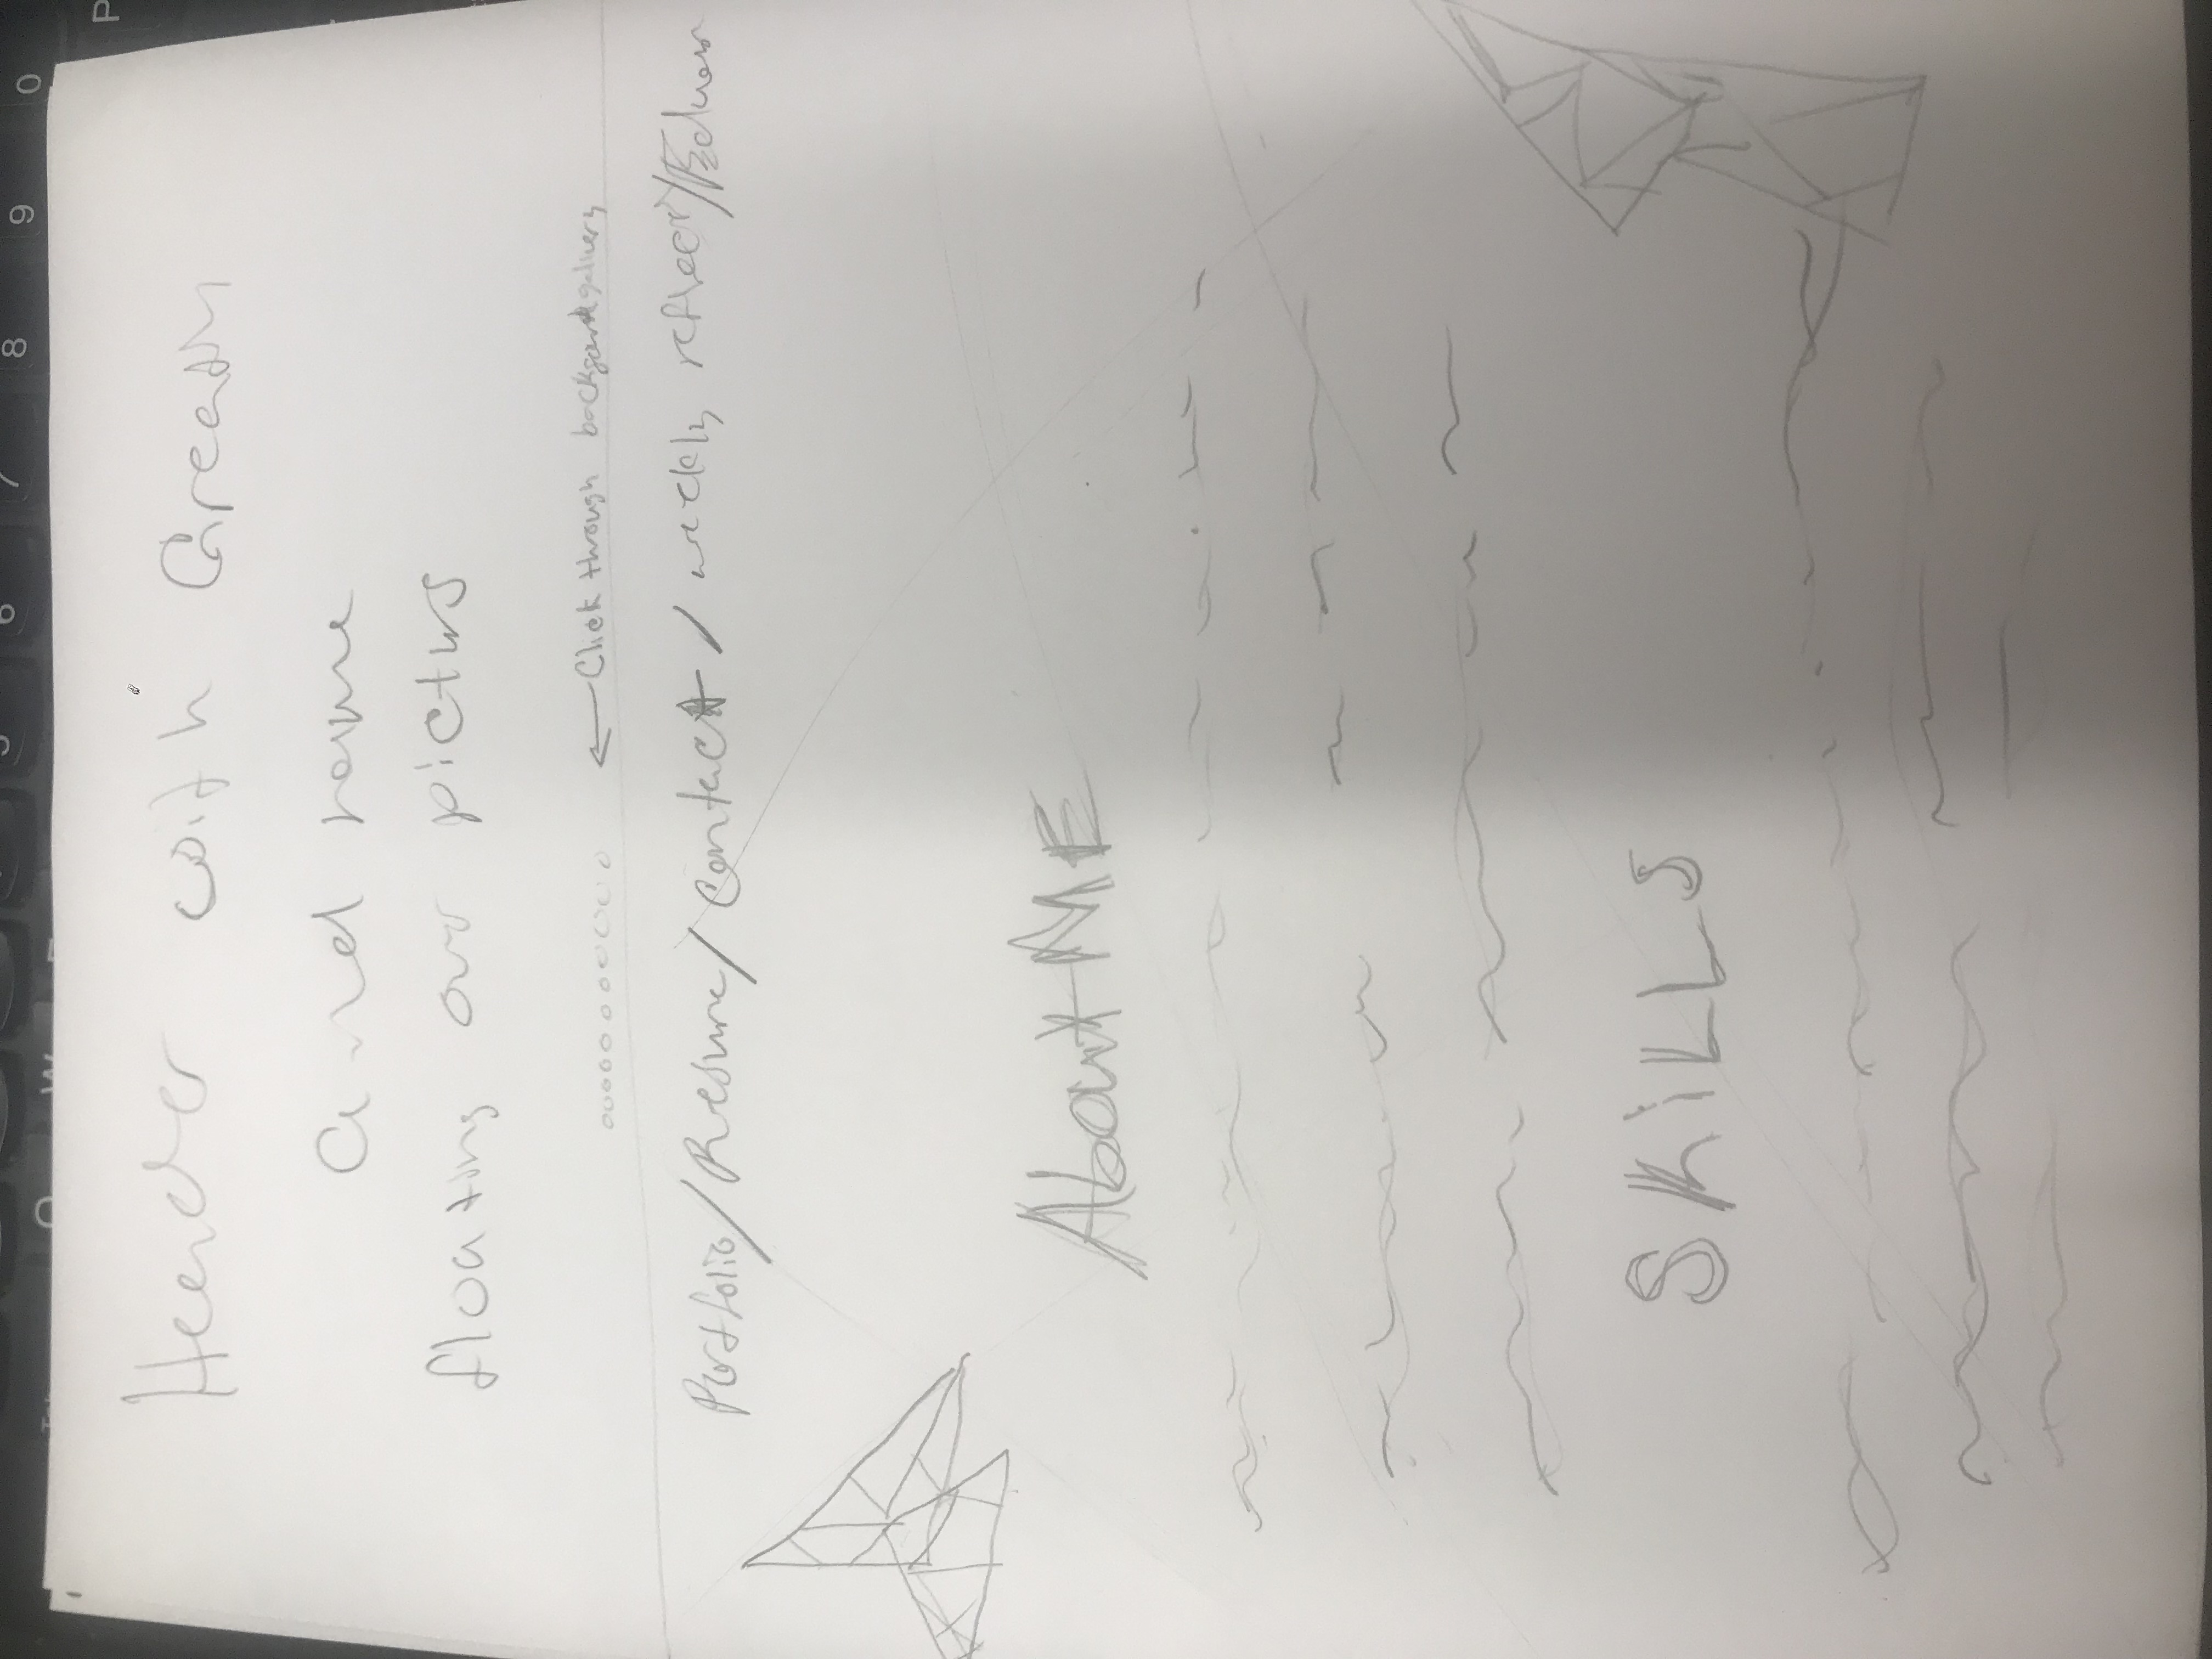 Header with Green
and name
floating over pictures
← Click through background gallery
Portfolio / Resume / Contact / weekly reflect /
About ME
SKILLS